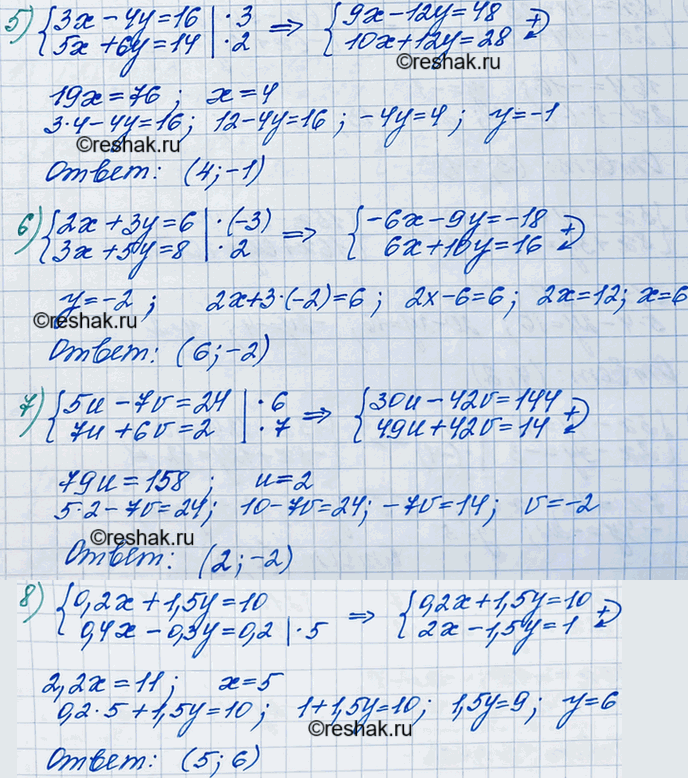 5) {3x - 4y = 16 | · 3 ⇒ {9x - 12y = 48
5x + 6y = 14 | · 2 10x + 12y = 28 +
©reshak.ru
19x = 76 ; x = 4
3·4 - 4y = 16; 12 - 4y = 16 ; -4y = 4 ; y = -1
©reshak.ru
Ответ: (4; -1)
6) {2x + 3y = 6 | · (-3) ⇒ {-6x - 9y = -18
3x + 5y = 8 | · 2 6x + 10y = 16 +
y = -2 ; 2x + 3·(-2) = 6 ; 2x - 6 = 6 ; 2x = 12; x = 6
©reshak.ru
Ответ: (6; -2)
7) {5u - 7v = 24 | · 6 ⇒ {30u - 42v = 144
7u + 6v = 2 | · 7 49u + 42v = 14 +
79u = 158 ; u = 2
5·2 - 7v = 24; 10 - 7v = 24; -7v = 14; v = -2
©reshak.ru
Ответ: (2; -2)
8) {0,2x + 1,5y = 10 ⇒ {0,2x + 1,5y = 10
0,4x - 0,3y = 0,2 | · 5 2x - 1,5y = 1 +
2,2x = 11 ; x = 5
0,2·5 + 1,5y = 10; 1 + 1,5y = 10; 1,5y = 9; y = 6
©reshak.ru
Ответ: (5; 6)